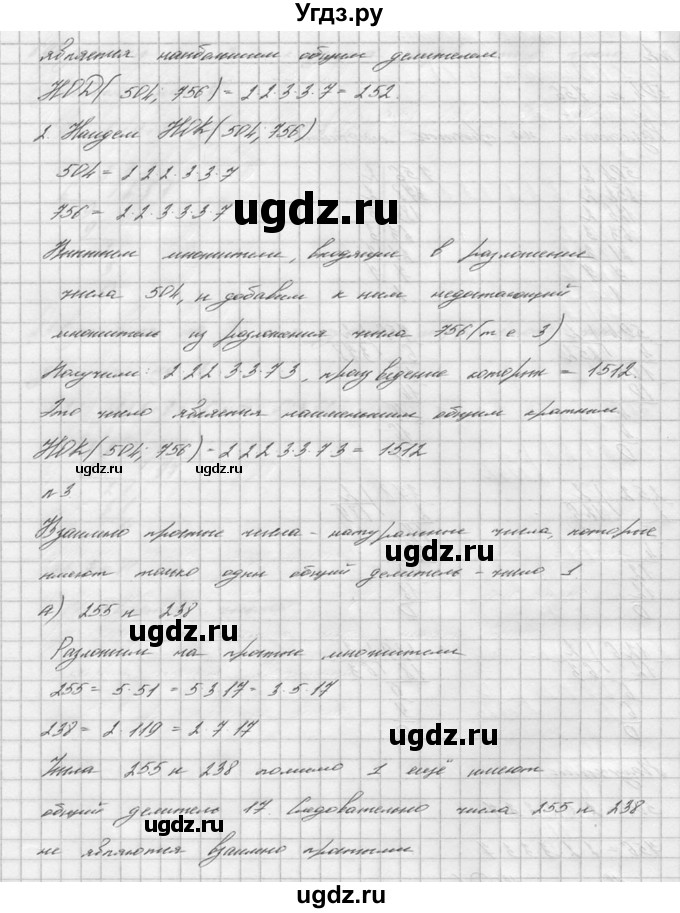 Угдз.ру
является наибольшим общим делителем.
НОД( 504; 756) = 2 2·3·3·7 = 252.
2. Найдем НОК(504; 756)
504 = 2 2 2·3·3·7
756 = 2 2·3·3·3·7
ugdz.ru
Выпишем множители, входящие в разложение
числа 504, и добавим к ним недостающий
множитель из разложения числа 756(т е 3)
Получили: 2 2 2 3 3·7 3, произведение которых = 1512.
Это число является наименьшим общим кратным
НОК( 504; 756) = 2 2 2 3·3·7 3 = 1512
ugdz.ru ugdz.ru
№3
Взаимно простые числа - натуральные числа, которые
ugdz.ru
имеют только один общий делитель - число 1
а) 255 и 238
ugdz.ru
Разложим на простые множители
255 = 5·51 = 5 3 17 = 3·5·17
238 = 2 119 = 2 7 17
ugdz.ru
Числа 255 и 238 помимо 1 ещё имеют
общий делитель 17. Следовательно числа 255 и 238
ugdz.ru
не являются взаимно простыми
ugdz.ru